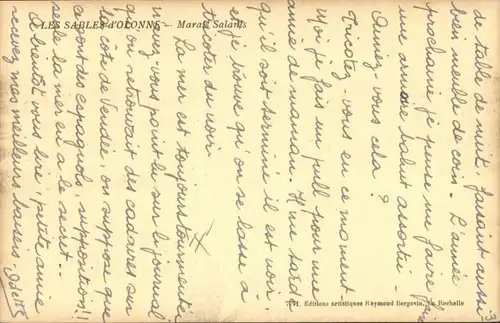 LES SABLES-d'OLONNE — Marais Salants
de table de nuit, faisant aussi
bien meuble de coin. L'année
prochaine je pense me faire faire
une armoire bahut assortie.
Aimez-vous cela ?
Tricotez-vous en ce moment
Moi je fais un pull pour une
amie de maman. Il me tarde
qu'il soit terminé il est noir
et je trouve qu'on se lasse à
tricoter du noir
La mer est toujours tourmentée
n'avez-vous point lu sur le journal
qu'on retrouvait des cadavres sur
la côte de Vendée, on suppose que
ce sont des espagnols, supposition !!
seule la mer en a le secret...
A bientôt vous lire, petite amie
recevez mes meilleurs baisers
3
Editions artistiques Raymond Bergevin, La Rochelle